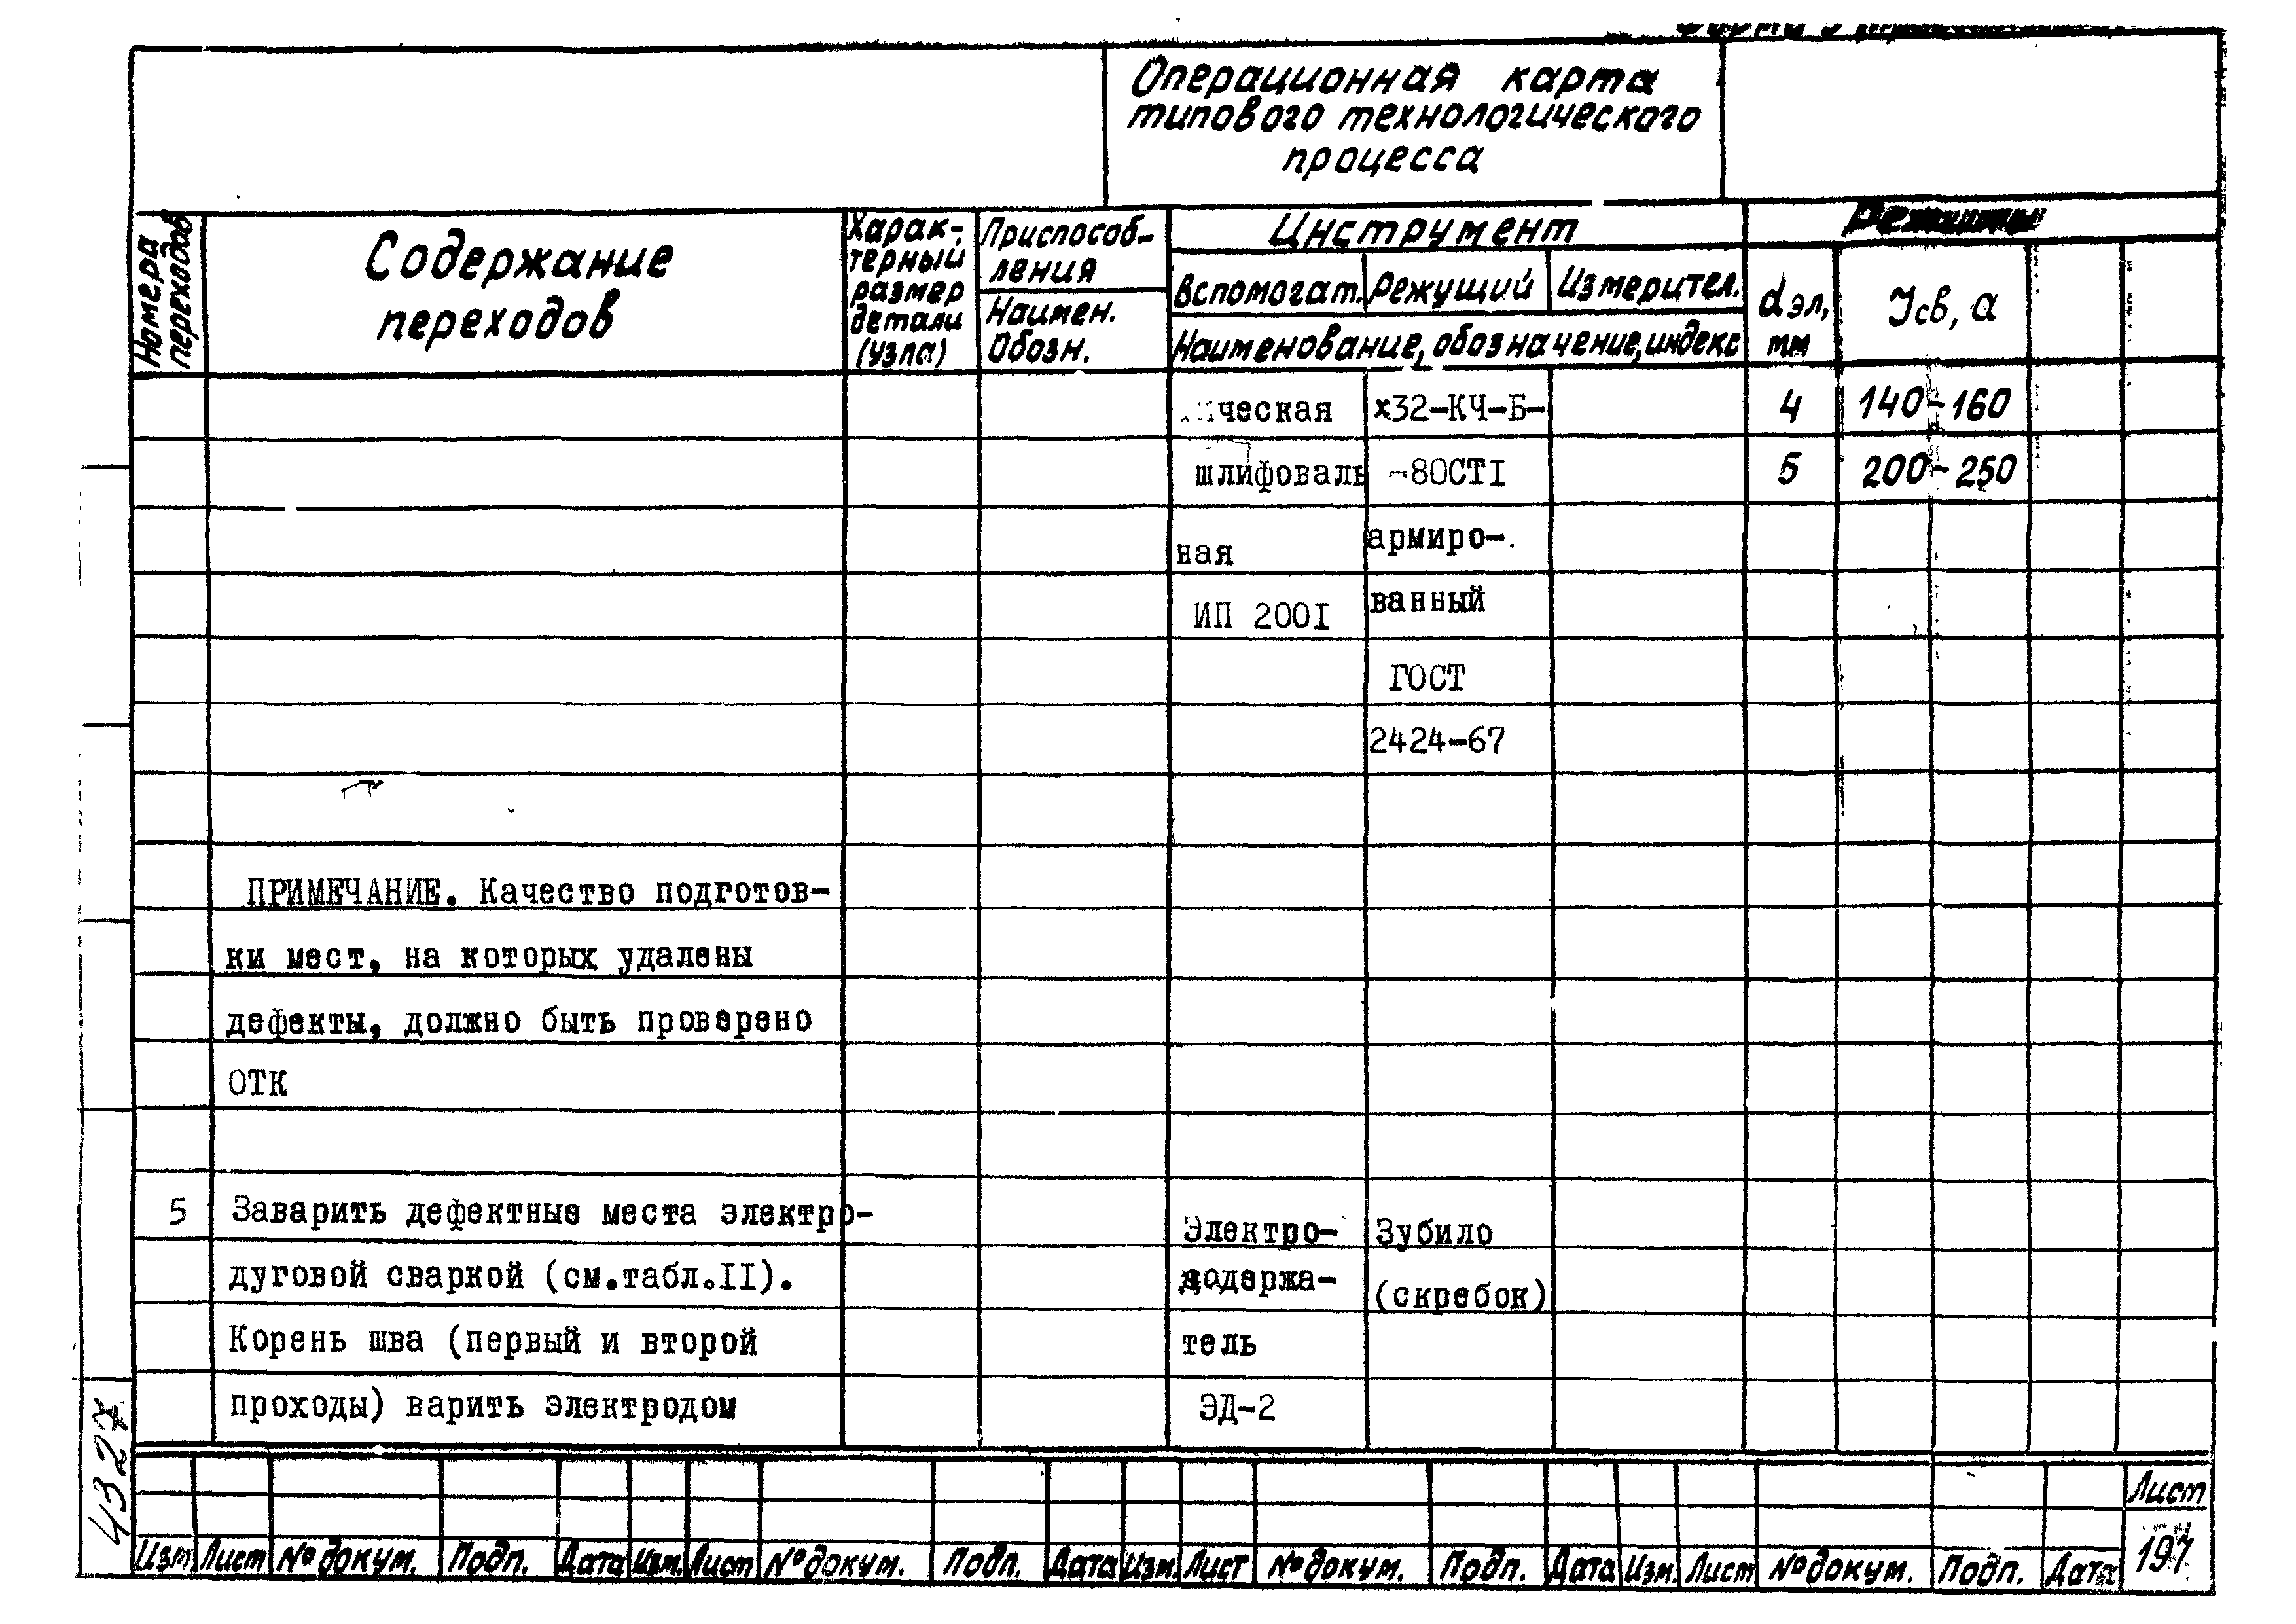 Операционная карта
типового технологического
процесса
Номера переходов
Содержание
переходов
Харак-
терный
размер
детали
(узла)
Приспособ-
ления
Наимен.
Обозн.
Инструмент
Вспомогат. Режущий Измерител.
Наименование, обозначение, индекс
Режимы
dэл,
мм
Iсв, а
ическая х32-КЧ-Б- 4 140-160
шлифоваль -80СТI 5 200-250
ная армиро-
ИП 200I ванный
ГОСТ
2424-67
ПРИМЕЧАНИЕ. Качество подготов-
ки мест, на которых удалены
дефекты, должно быть проверено
ОТК
5 Заварить дефектные места электро- Электро- Зубило
дуговой сваркой (см.табл.II). додержа- (скребок)
Корень шва (первый и второй тель
проходы) варить электродом ЭД-2
4327
Лист
197
Изм Лист № докум. Подп. Дата Изм. Лист № докум. Подп. Дата Изм. Лист № докум. Подп. Дата Изм. Лист № докум. Подп. Дата